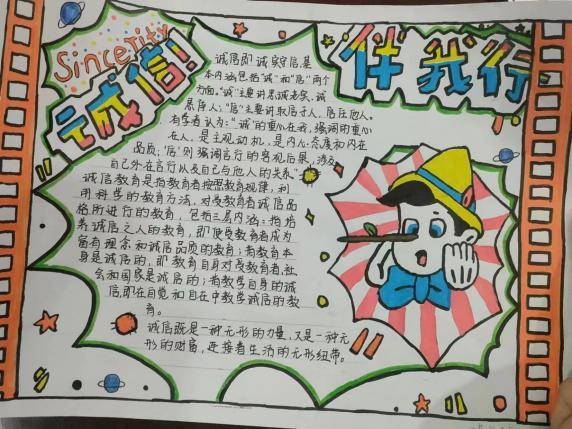 Sincerity
诚信!
伴我行
诚信即诚实守信基
本内涵包括"诚"和"信"两个
方面。"诚"主要讲忠诚老实、诚
恳待人;"信"主要讲取信于人,信任他人。
有学者认为:"诚"的重心在我,强调的重心
在人,是主观动机,是内心态度和内在
品质;"信"则强调言行的客观后果,涉及
自己外在言行以及自己与他人的关系"
诚信教育是指教育者按照教育规律,利
用科学的教育方法,对受教育者诚信品
格所进行的教育,包括三层内涵:指培
养诚信之人的教育,即使受教育者成为
富有理念和诚信品质的教育;指教育本
身是诚信的,即教育自身对受教育者,社
会和国家是诚信的;指教学自身的诚
信,即在自觉和自在中教学诚信的教
育。
诚信既是一种无形的力量,又是一种无
形的财富,连接着生活的无形纽带。